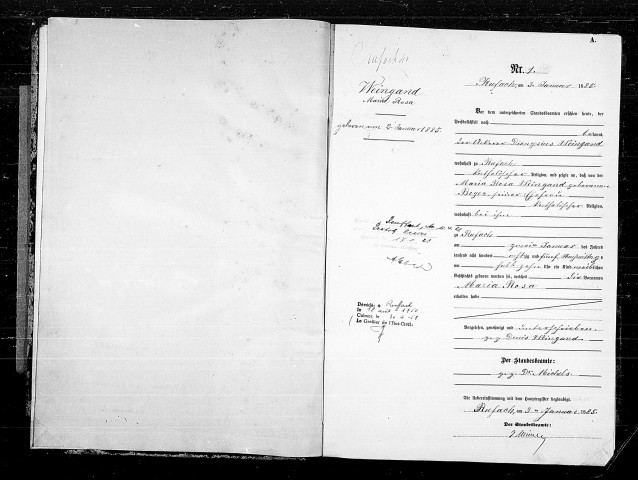 A.
Rufach
Nr. 1.
Rufach, am 3. Januar 1885.
Weingand
Maria Rosa
geboren am 2. Januar 1885.
Vor dem unterzeichneten Standesbeamten erschien heute, der
Persönlichkeit nach
bekannt,
der Ackerer Dionysius Weingand
wohnhaft zu Rufach
katholischer Religion, und zeigte an, daß von der
Maria Rosa Weingand geborenen
Beyer, seiner Ehefrau
katholischer Religion,
wohnhaft bei ihm
zu Rufach
am zweiten Januar des Jahres
tausend acht hundert achtzig und fünf, Nachmittags
um Uhr ein Kind weiblichen
Geschlechts geboren worden sei, welches die Vornamen
Maria Rosa
erhalten habe
Vorgelesen, genehmigt und unterschrieben
gez. Denis Weingand
Der Standesbeamte:
gez. Dr. Michels
Die Uebereinstimmung mit dem Hauptregister beglaubigt
Rufach, am 3. Januar 1885.
Der Standesbeamte:
Décédée à Rouffach
le 1950
Colmar, le
Le Greffier de l'Etat-Civil: